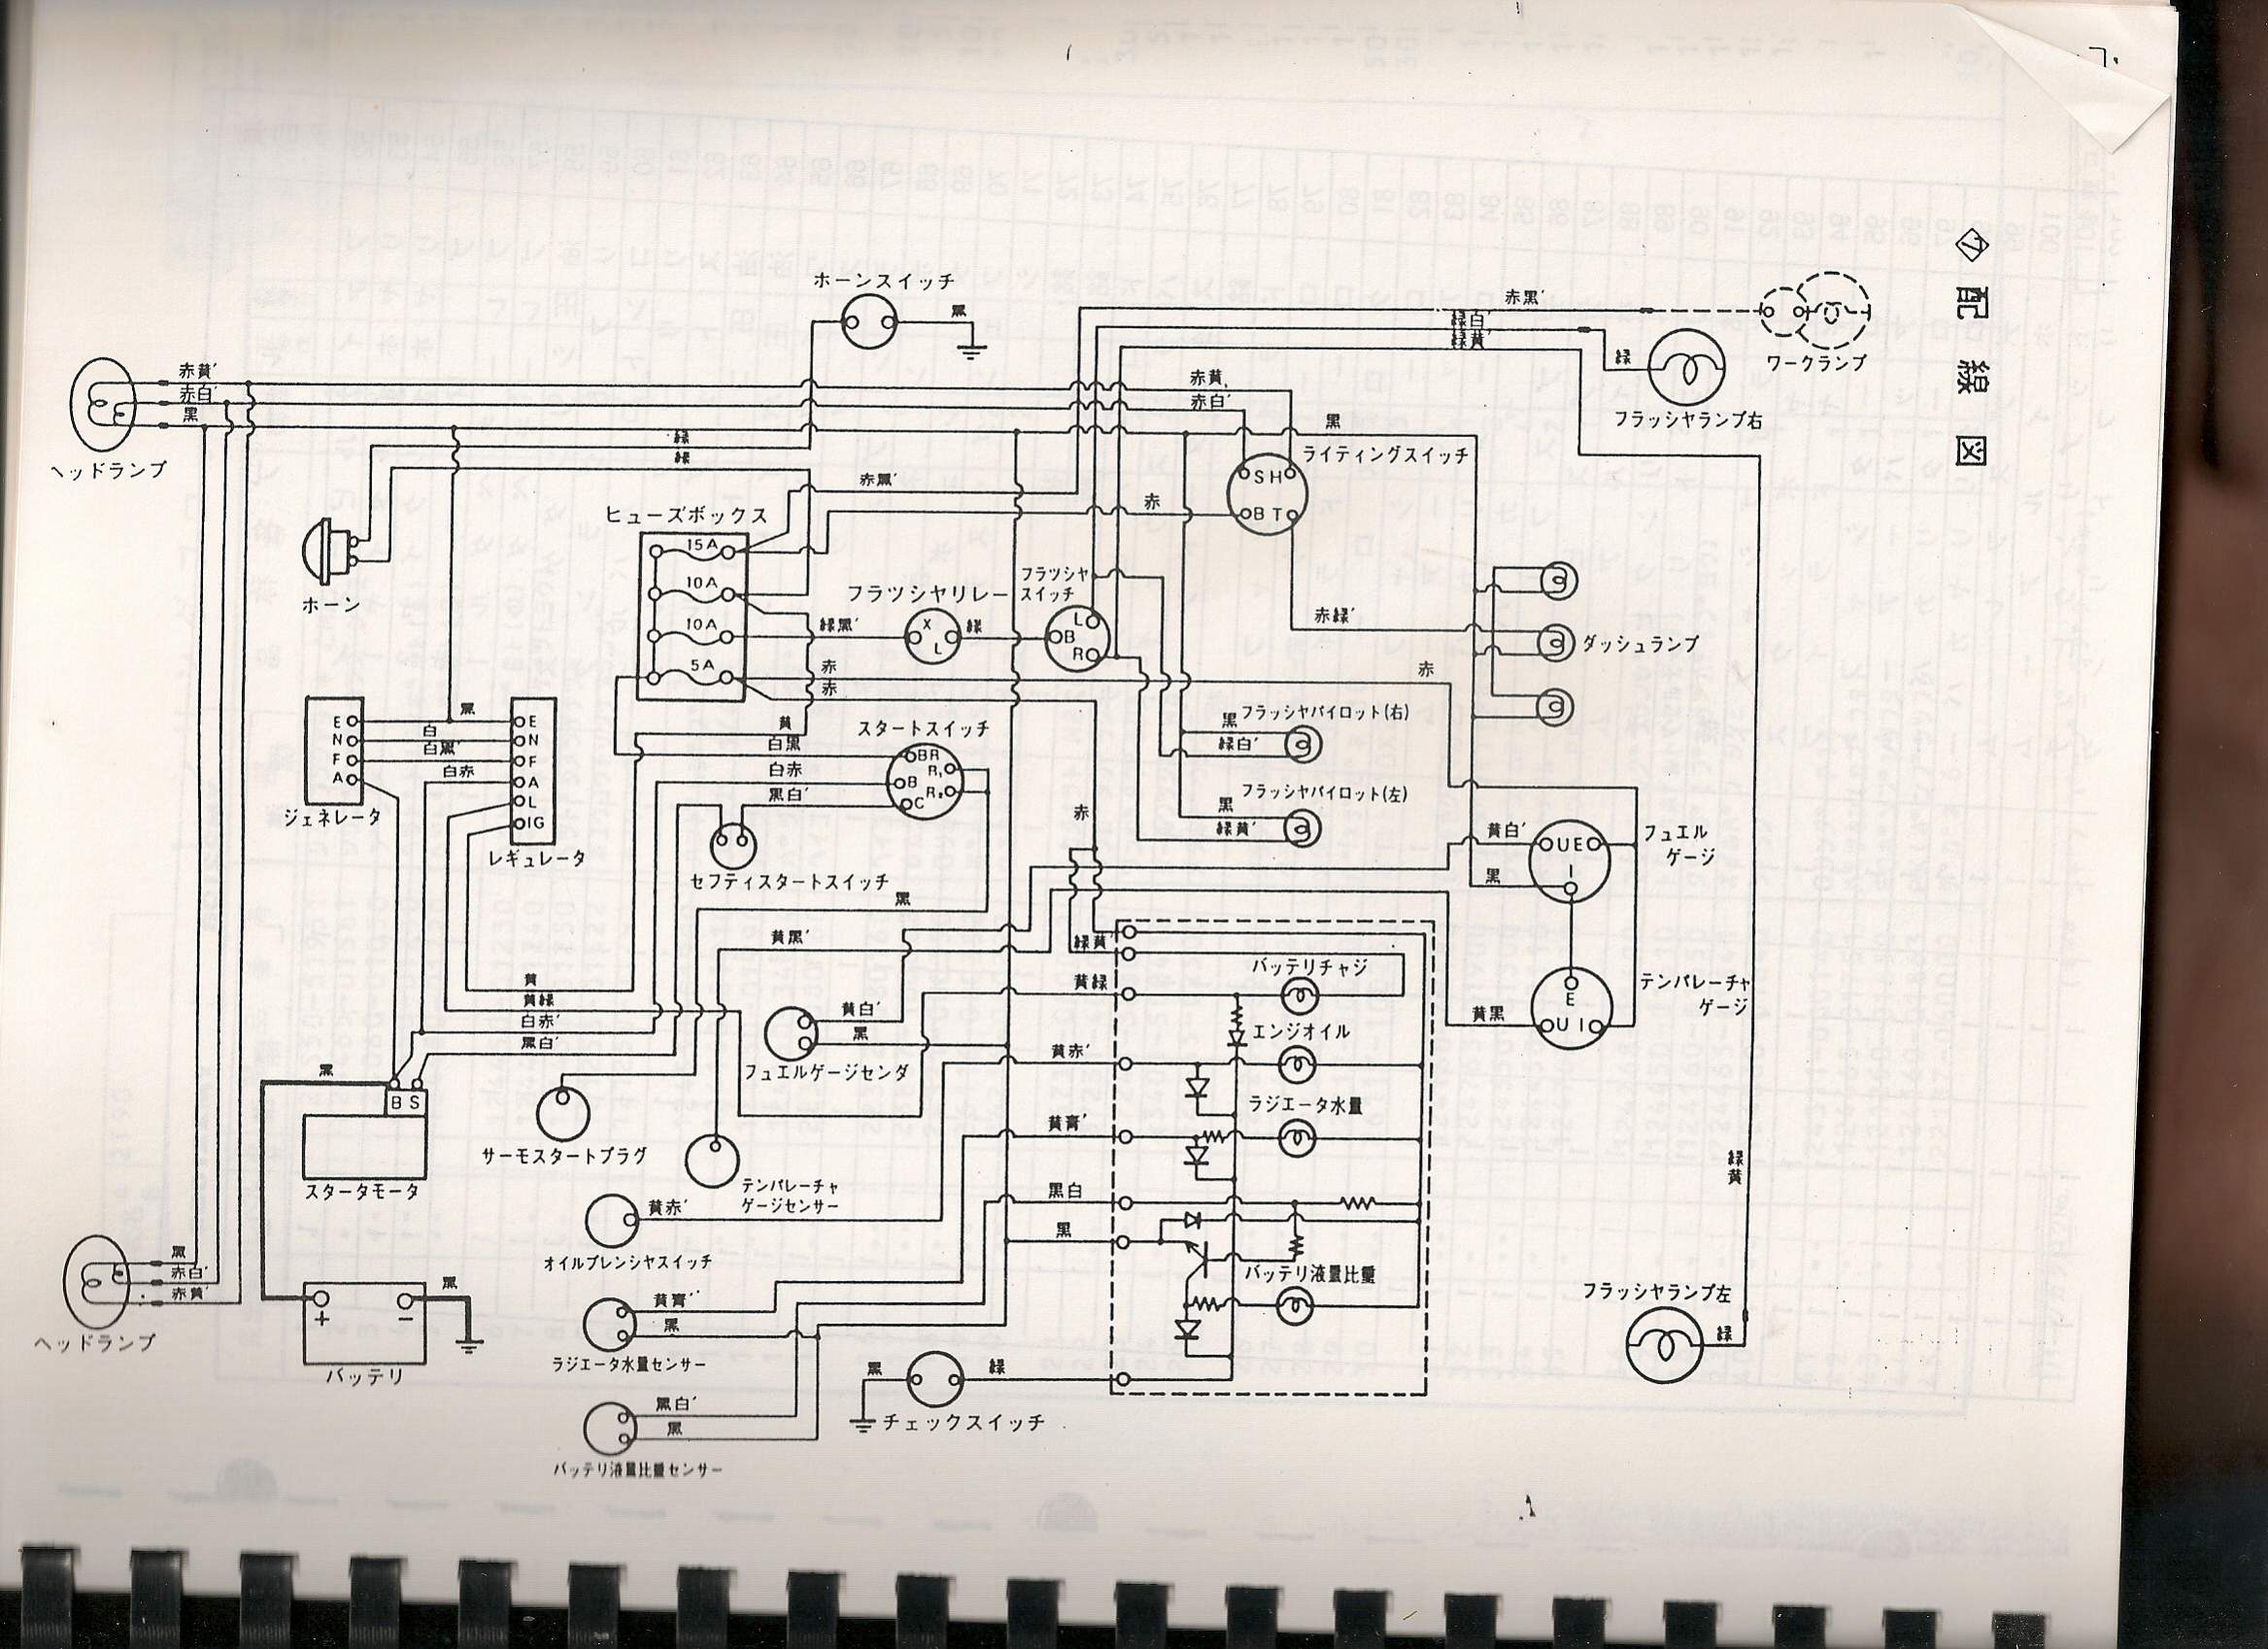 ⑦ 配線図
ホーンスイッチ
黒
赤黒′
緑白′
緑黄′
緑
ワークランプ
フラッシヤランプ右
赤黄′
赤白′
黒
ヘッドランプ
赤黄′
赤白′
黒
緑
緑
ライティングスイッチ
S H
B T
赤黒′
赤
ヒューズボックス
15A
10A
10A
5A
ホーン
フラツシヤリレー
フラツシヤ
スイッチ
X
L
L
B
R
緑黒′
緑
赤
赤
赤緑′
赤
ダッシュランプ
E
N
F
A
ジェネレータ
黒
白
白黒′
白赤
E
N
F
A
L
IG
レギュレータ
黄
白黒
白赤
黒白′
スタートスイッチ
BR
R₁
B
R₂
C
フラッシヤパイロット(右)
黒
緑白′
フラッシヤパイロット(左)
黒
緑黄′
セフティスタートスイッチ
黒
赤
黄白′
U E
I
黒
フュエル
ゲージ
黄黒′
緑黄′
黄緑
バッテリチャジ
テンパレーチャ
ゲージ
E
U I
黄黒
黄
黄緑
白赤′
黒白′
黄白′
黒
フュエルゲージセンダ
エンジオイル
黄赤′
黒
B S
スタータモータ
サーモスタートプラグ
ラジエータ水量
テンパレーチャ
ゲージセンサー
黄赤′
オイルプレシヤスイッチ
黒白
黒
緑
黄
黒
赤白′
赤黄′
ヘッドランプ
+
−
黒
バッテリ
黒
ラジエータ水量センサー
バッテリ液量比重
フラッシヤランプ左
緑
黒
緑
チェックスイッチ
黒白′
黒
バッテリ液量比重センサー